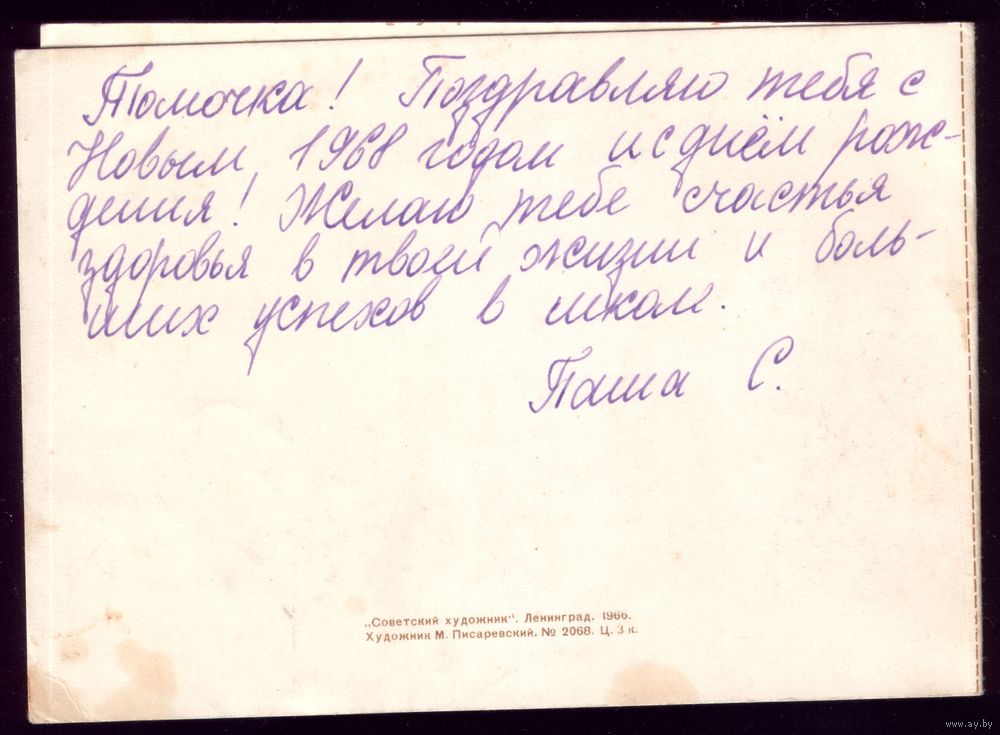 Томочка! Поздравляю тебя с
Новым, 1968 годом и с днём рож-
дения! Желаю тебе счастья
здоровья в твоей жизни и боль-
ших успехов в школе.
Паша С.
„Советский художник“. Ленинград. 1966.
Художник М. Писаревский. № 2068. Ц. 3 к.
www.ay.by